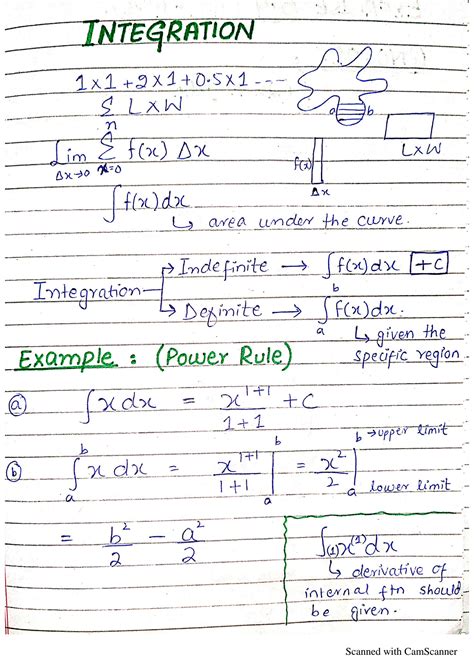 INTEGRATION
1×1 + 2×1 + 0.5×1 ---
Σ L×W
a b
n
Lim Σ f(x) Δx
Δx→0 x=0
f(x)
Δx
L×W
∫f(x)dx
↳ area under the curve.
Integration → Indefinite → ∫f(x)dx +C
→ Definite → ∫ₐᵇ f(x)dx.
↳ given the
specific region
Example : (Power Rule)
ⓐ ∫x dx = x¹⁺¹/1+1 + C
ⓑ ∫ₐᵇ x dx = x¹⁺¹/1+1 |ₐᵇ = x²/2 |ₐᵇ
b → upper limit
a lower limit
= b²/2 − a²/2
∫(1)x⁽¹⁾dx
↳ derivative of
internal ftn should
be given.
Scanned with CamScanner